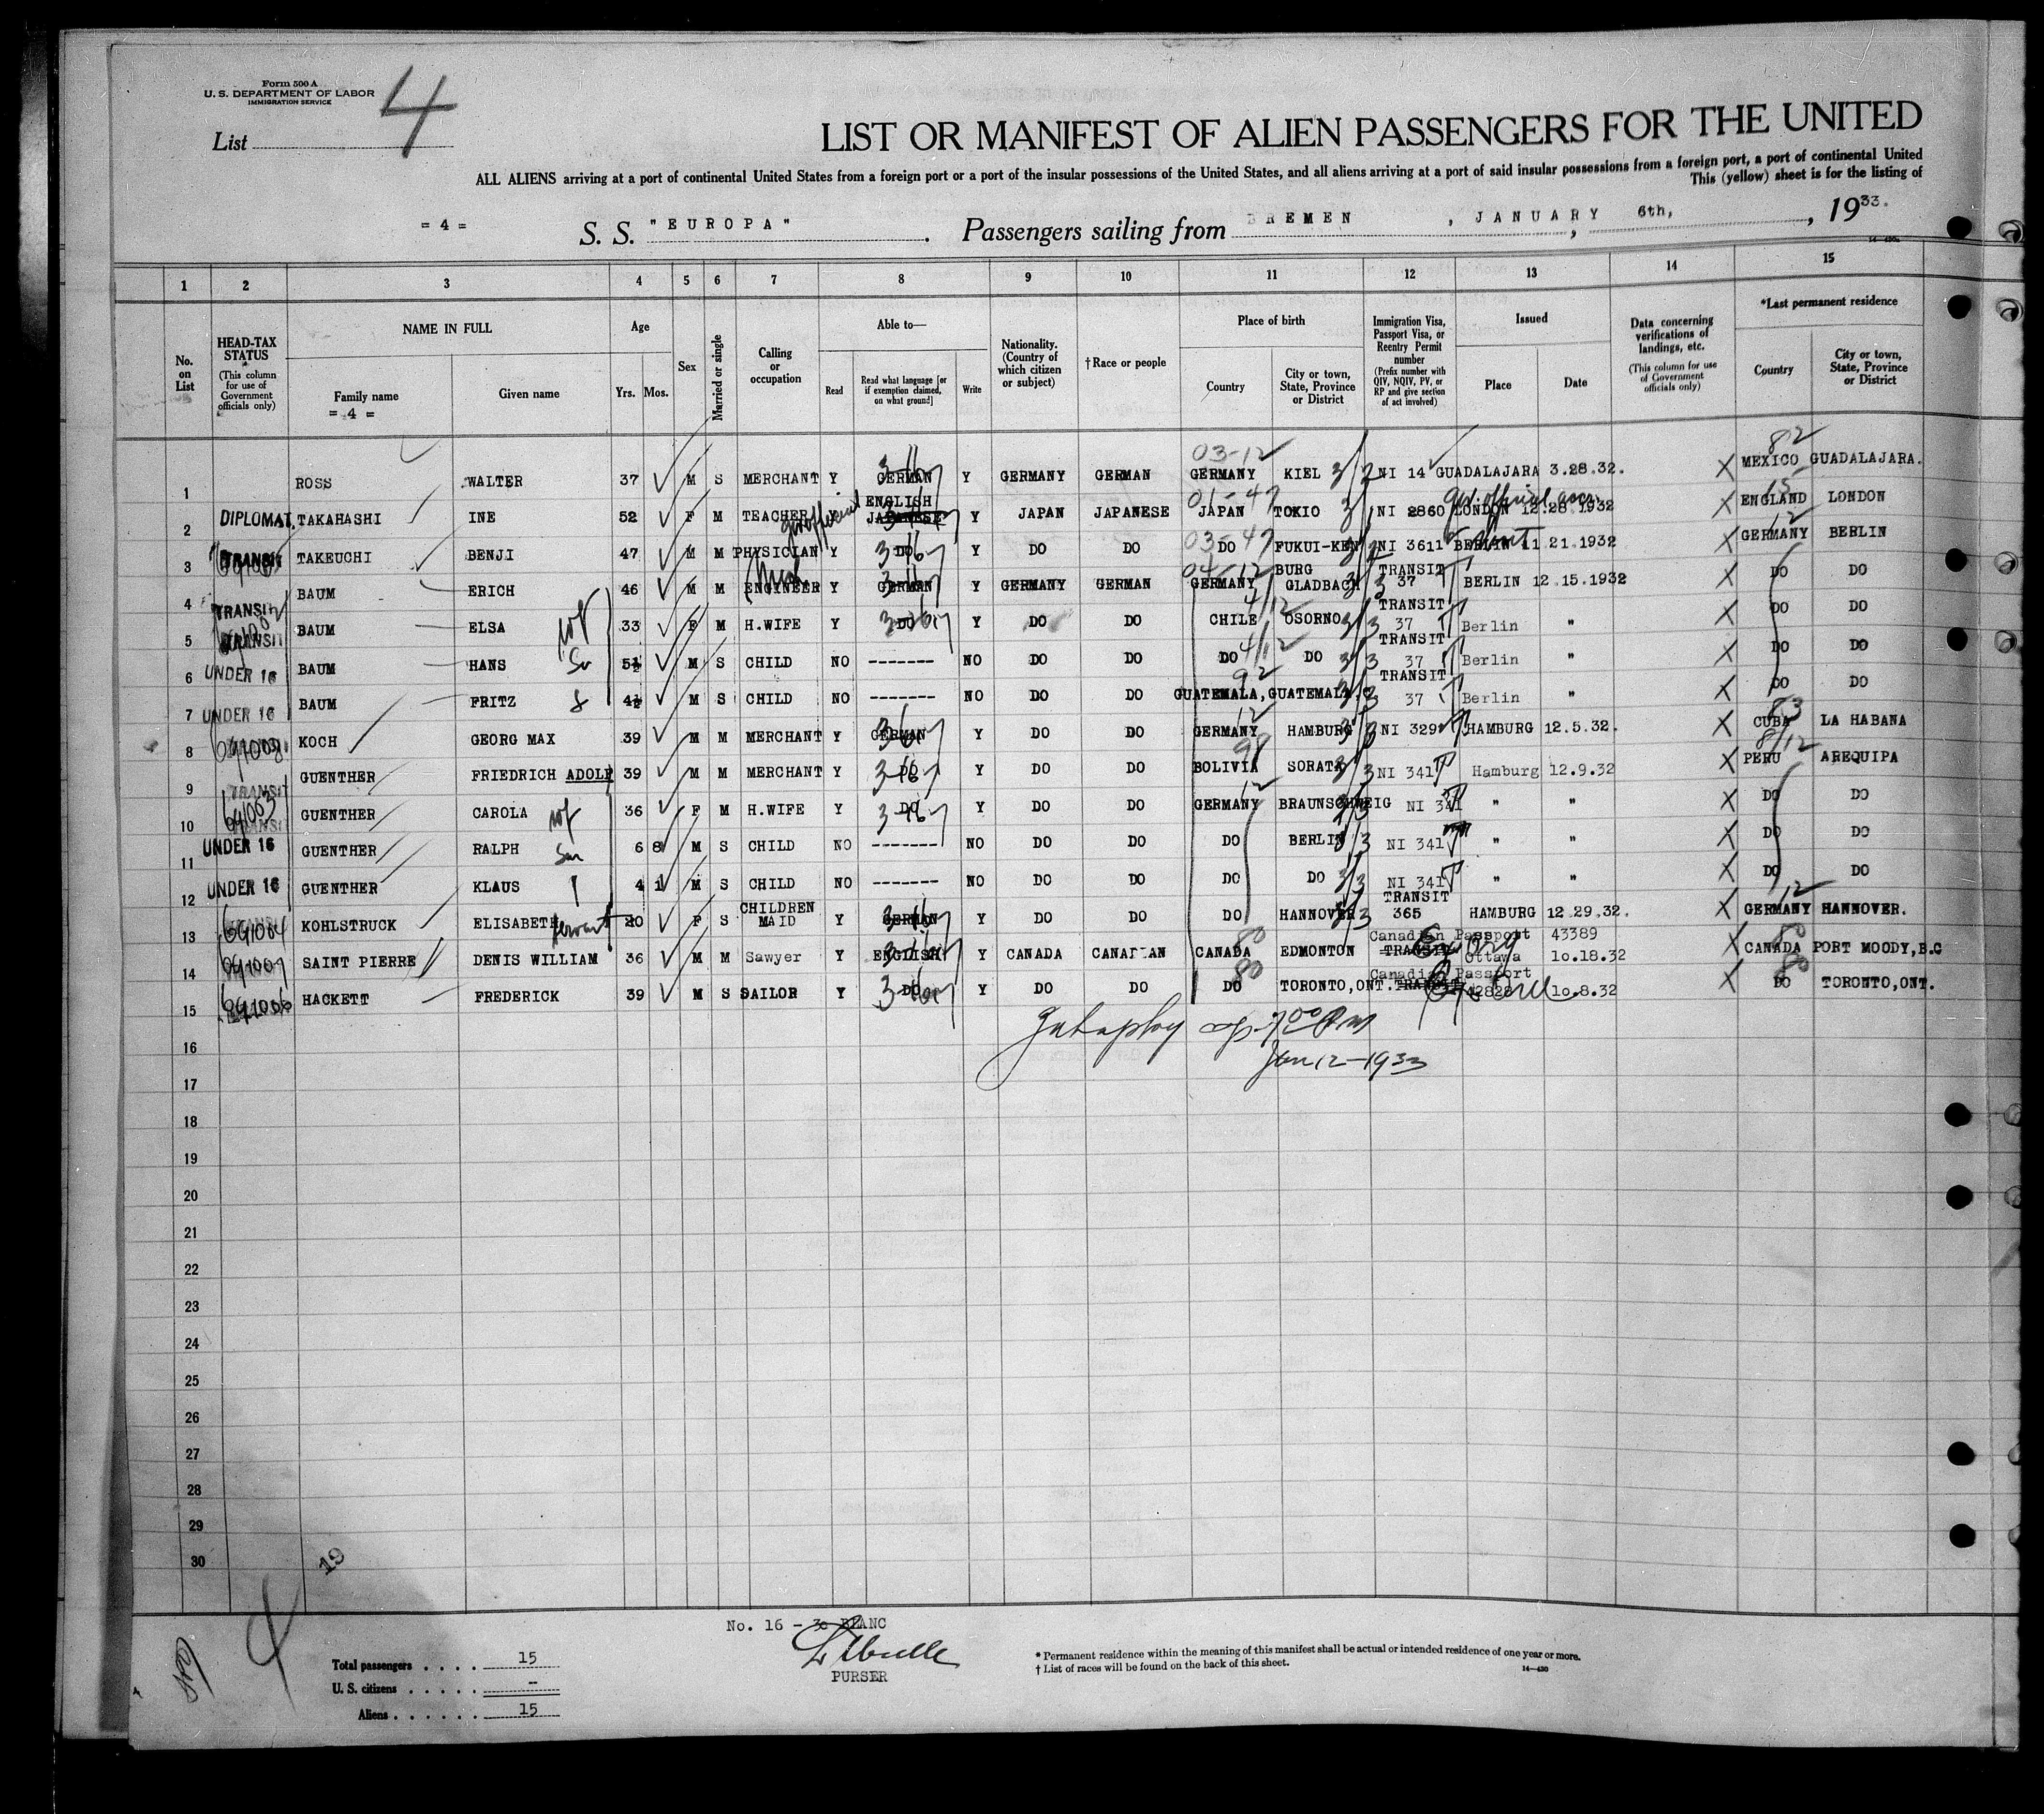 Form 500 A
U. S. DEPARTMENT OF LABOR
IMMIGRATION SERVICE
List 4
LIST OR MANIFEST OF ALIEN PASSENGERS FOR THE UNITED
ALL ALIENS arriving at a port of continental United States from a foreign port or a port of the insular possessions of the United States, and all aliens arriving at a port of said insular possessions from a foreign port, a port of continental United
This (yellow) sheet is for the listing of
= 4 = S. S. "EUROPA". Passengers sailing from BREMEN, JANUARY 6th, 1933.
14-430a
1 2 3 4 5 6 7 8 9 10 11 12 13 14 15
No. on List
HEAD-TAX STATUS (This column for use of Government officials only)
NAME IN FULL
Family name
= 4 =
Given name
Age
Yrs. Mos.
Sex
Married or single
Calling or occupation
Able to—
Read
Read what language [or if exemption claimed, on what ground]
Write
Nationality. (Country of which citizen or subject)
†Race or people
Place of birth
Country
City or town, State, Province or District
Immigration Visa, Passport Visa, or Reentry Permit number (Prefix number with QIV, NQIV, PV, or RP and give section of act involved)
Issued
Place
Date
Data concerning verifications of landings, etc. (This column for use of Government officials only)
*Last permanent residence
Country
City or town, State, Province or District
03-12 82
1 ROSS WALTER 37 M S MERCHANT Y GERMAN Y GERMANY GERMAN GERMANY KIEL NI 14 GUADALAJARA 3.28.32. X MEXICO GUADALAJARA.
ENGLISH 01-47 gov. official 15
2 DIPLOMAT. TAKAHASHI INE 52 F M TEACHER Y JAPANESE Y JAPAN JAPANESE JAPAN TOKIO NI 2860 LONDON 12.28.1932 X ENGLAND LONDON
gov official 03-47 12
3 TRANSIT TAKEUCHI BENJI 47 M M PHYSICIAN Y DO Y DO DO DO FUKUI-KEN NI 3611 BERLIN 11 21.1932 X GERMANY BERLIN
04-12 BURG TRANSIT
4 BAUM ERICH 46 M M ENGINEER Y GERMAN Y GERMANY GERMAN GERMANY GLADBACH 37 BERLIN 12.15.1932 X DO DO
TRANSIT TRANSIT
5 TRANSIT BAUM ELSA wf 33 F M H.WIFE Y DO Y DO DO CHILE OSORNO 37 Berlin " X DO DO
TRANSIT
6 UNDER 16 BAUM HANS 5½ M S CHILD NO ------- NO DO DO DO DO 37 Berlin " X DO DO
TRANSIT
7 UNDER 16 BAUM FRITZ 4½ M S CHILD NO ------- NO DO DO GUATEMALA, GUATEMALA.C 37 Berlin " X DO DO
8 KOCH GEORG MAX 39 M M MERCHANT Y GERMAN Y DO DO GERMANY HAMBURG NI 329 HAMBURG 12.5.32. X CUBA LA HABANA
9 GUENTHER FRIEDRICH ADOLF 39 M M MERCHANT Y DO Y DO DO BOLIVIA SORATA NI 341 Hamburg 12.9.32 X PERU AREQUIPA
TRANSIT
10 GUENTHER CAROLA wf 36 F M H.WIFE Y DO Y DO DO GERMANY BRAUNSCHWEIG NI 341 " " X DO DO
11 UNDER 16 GUENTHER RALPH son 6 8 M S CHILD NO ------- NO DO DO DO BERLIN NI 341 " " X DO DO
12 UNDER 16 GUENTHER KLAUS 4 1 M S CHILD NO ------- NO DO DO DO DO NI 341 " " X DO DO
CHILDREN TRANSIT
13 KOHLSTRUCK ELISABETH servant 20 F S MAID Y GERMAN Y DO DO DO HANNOVER 365 HAMBURG 12.29.32. X GERMANY HANNOVER.
Canadian Passport 43389
14 SAINT PIERRE DENIS WILLIAM 36 M M Sawyer Y ENGLISH Y CANADA CANADIAN CANADA EDMONTON TRANSIT Ottawa 10.18.32 X CANADA PORT MOODY,B.C
Canadian Passport
15 HACKETT FREDERICK 39 M S SAILOR Y DO Y DO DO DO TORONTO,ONT. TRANSIT 10.8.32 X DO TORONTO,ONT.
16
Jan 12-1933
17
18
19
20
21
22
23
24
25
26
27
28
29
30
19
4
No. 16 - 30 BLANC
PURSER
Total passengers . . . . 15
U. S. citizens . . . . . -
Aliens . . . . . . 15
* Permanent residence within the meaning of this manifest shall be actual or intended residence of one year or more.
† List of races will be found on the back of this sheet.
14-430